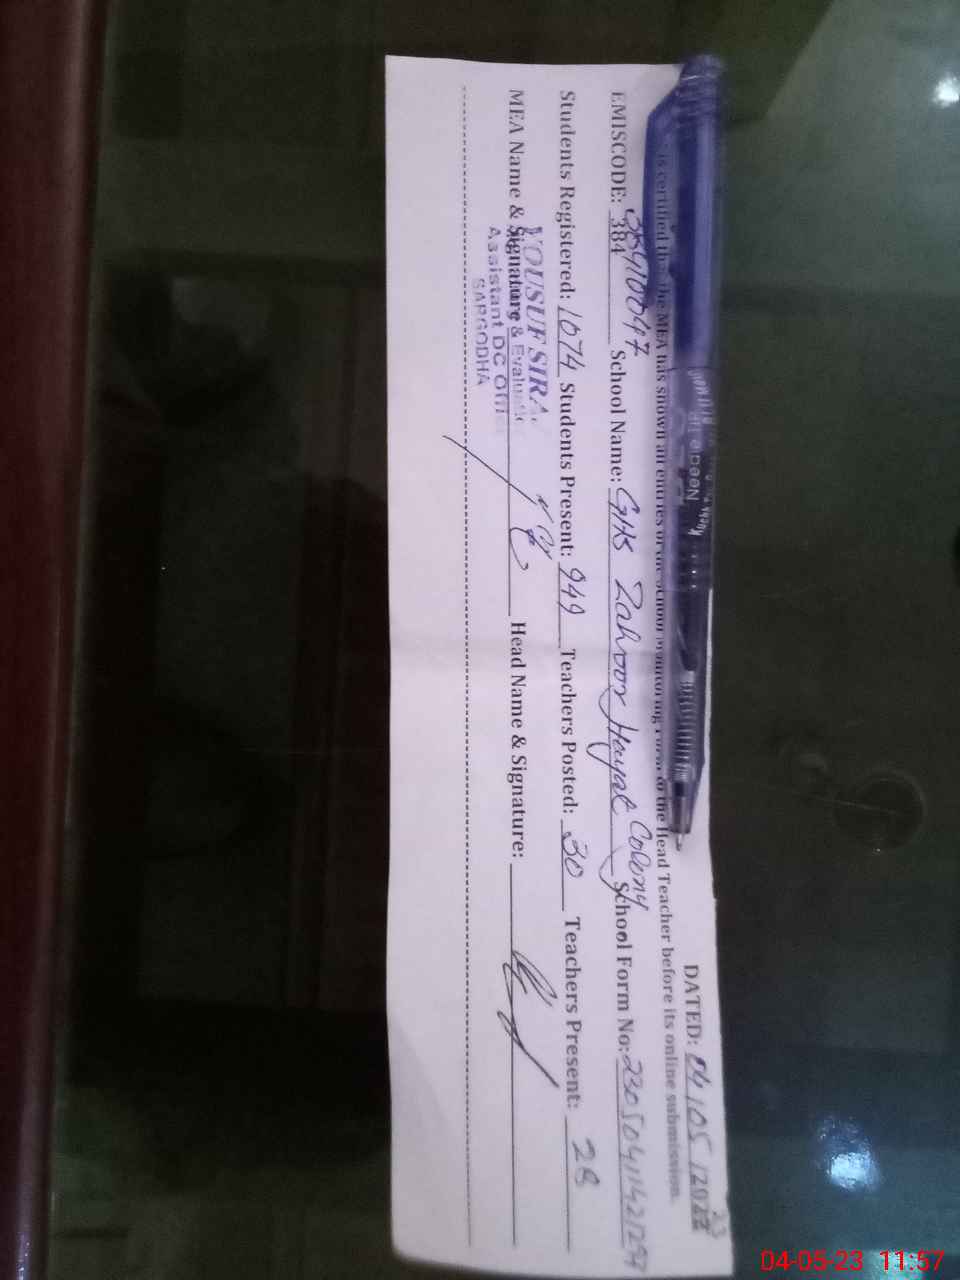 DATED: 04/05/2023
is certified that the MEA has shown all entries of the School Monitoring Form to the Head Teacher before its online submission.
EMISCODE: 384 38410047 School Name: GHS Zahoor Hayat Colony School Form No: 230504114
Students Registered: 1074 Students Present: 949 Teachers Posted: 30 Teachers Present: 28
MEA Name & Signature Head Name & Signature:
YOUSUF SIRA
& Evaluatio
Assistant DC Offic
SARGODHA
Needle Tip
04-05-23 11:57